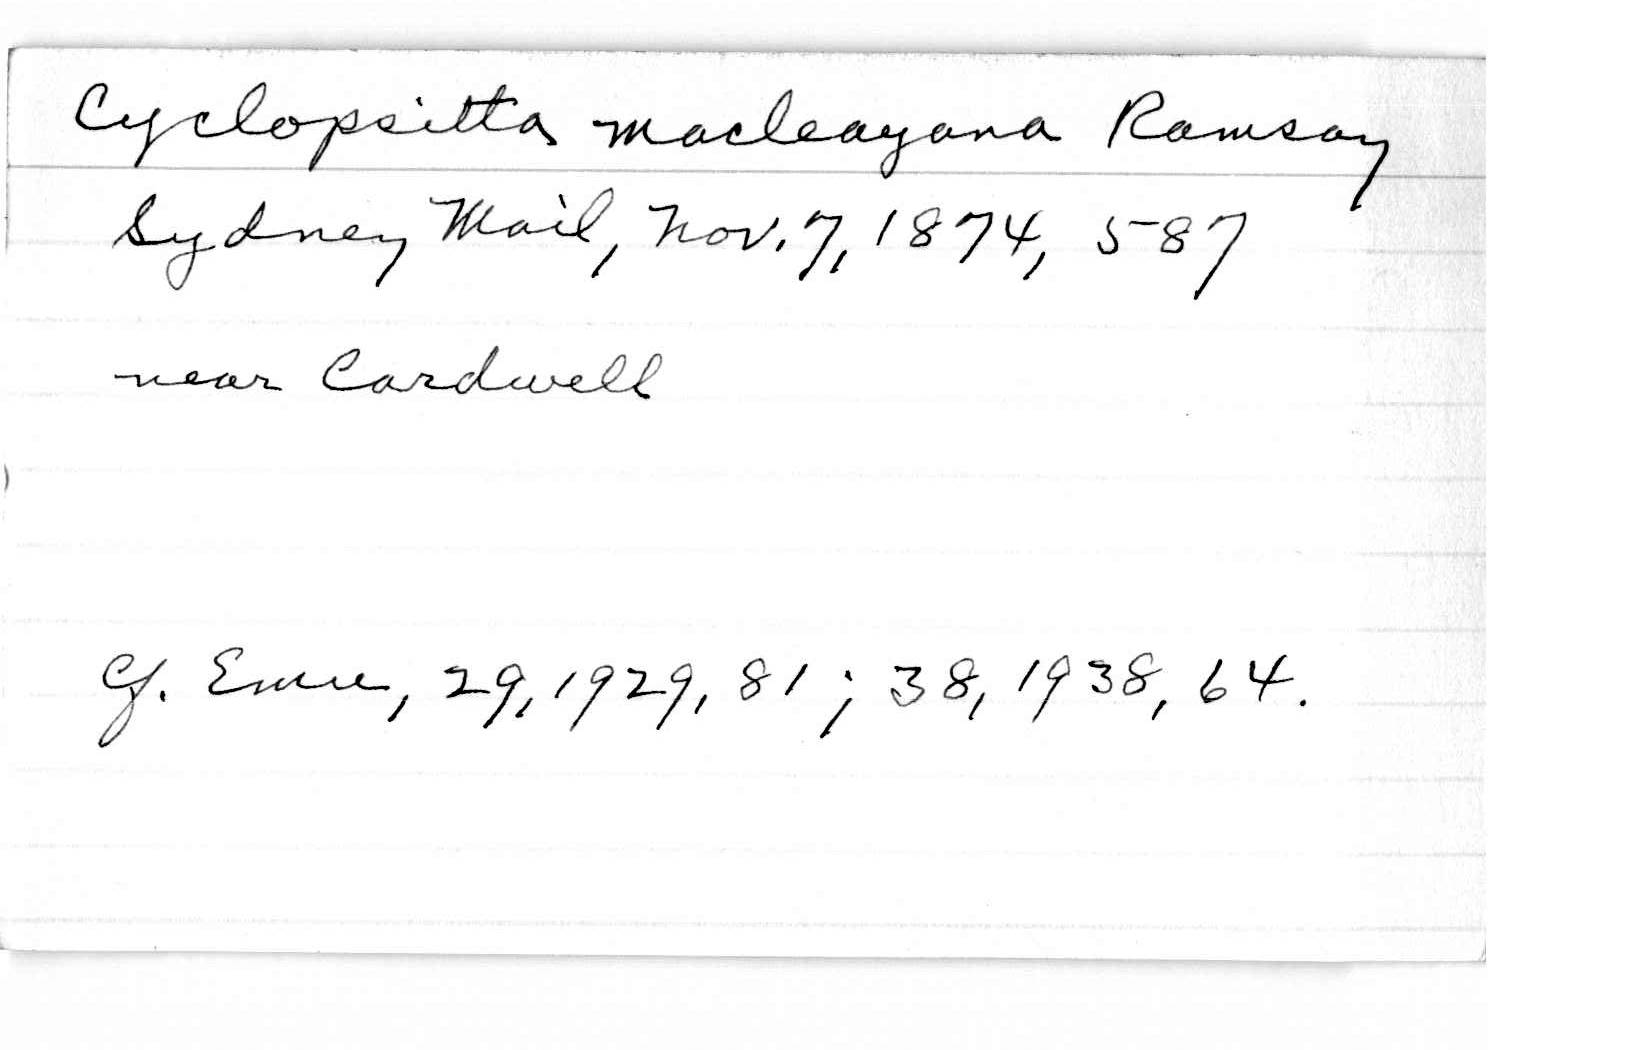 Cyclopsitta macleayana Ramsay
Sydney Mail, Nov. 7, 1874, 587
near Cardwell
Cf. Emu, 29, 1929, 81; 38, 1938, 64.